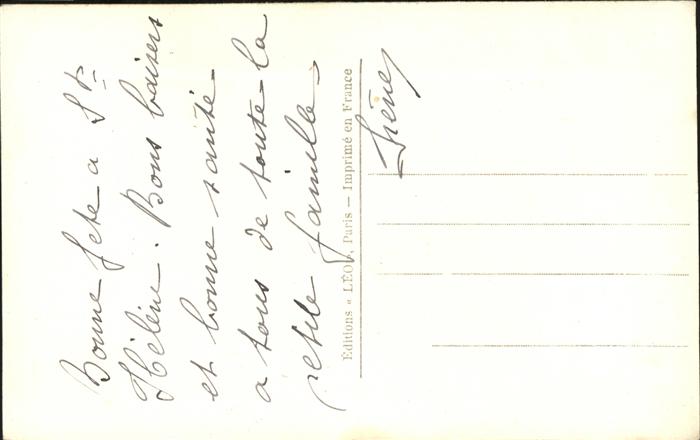 Bonne fete a Ste
Hélène. Bons baisers
et bonne santé
a tous de toute la
petite famille
Irène
Éditions « LÉO », Paris — Imprimé en France